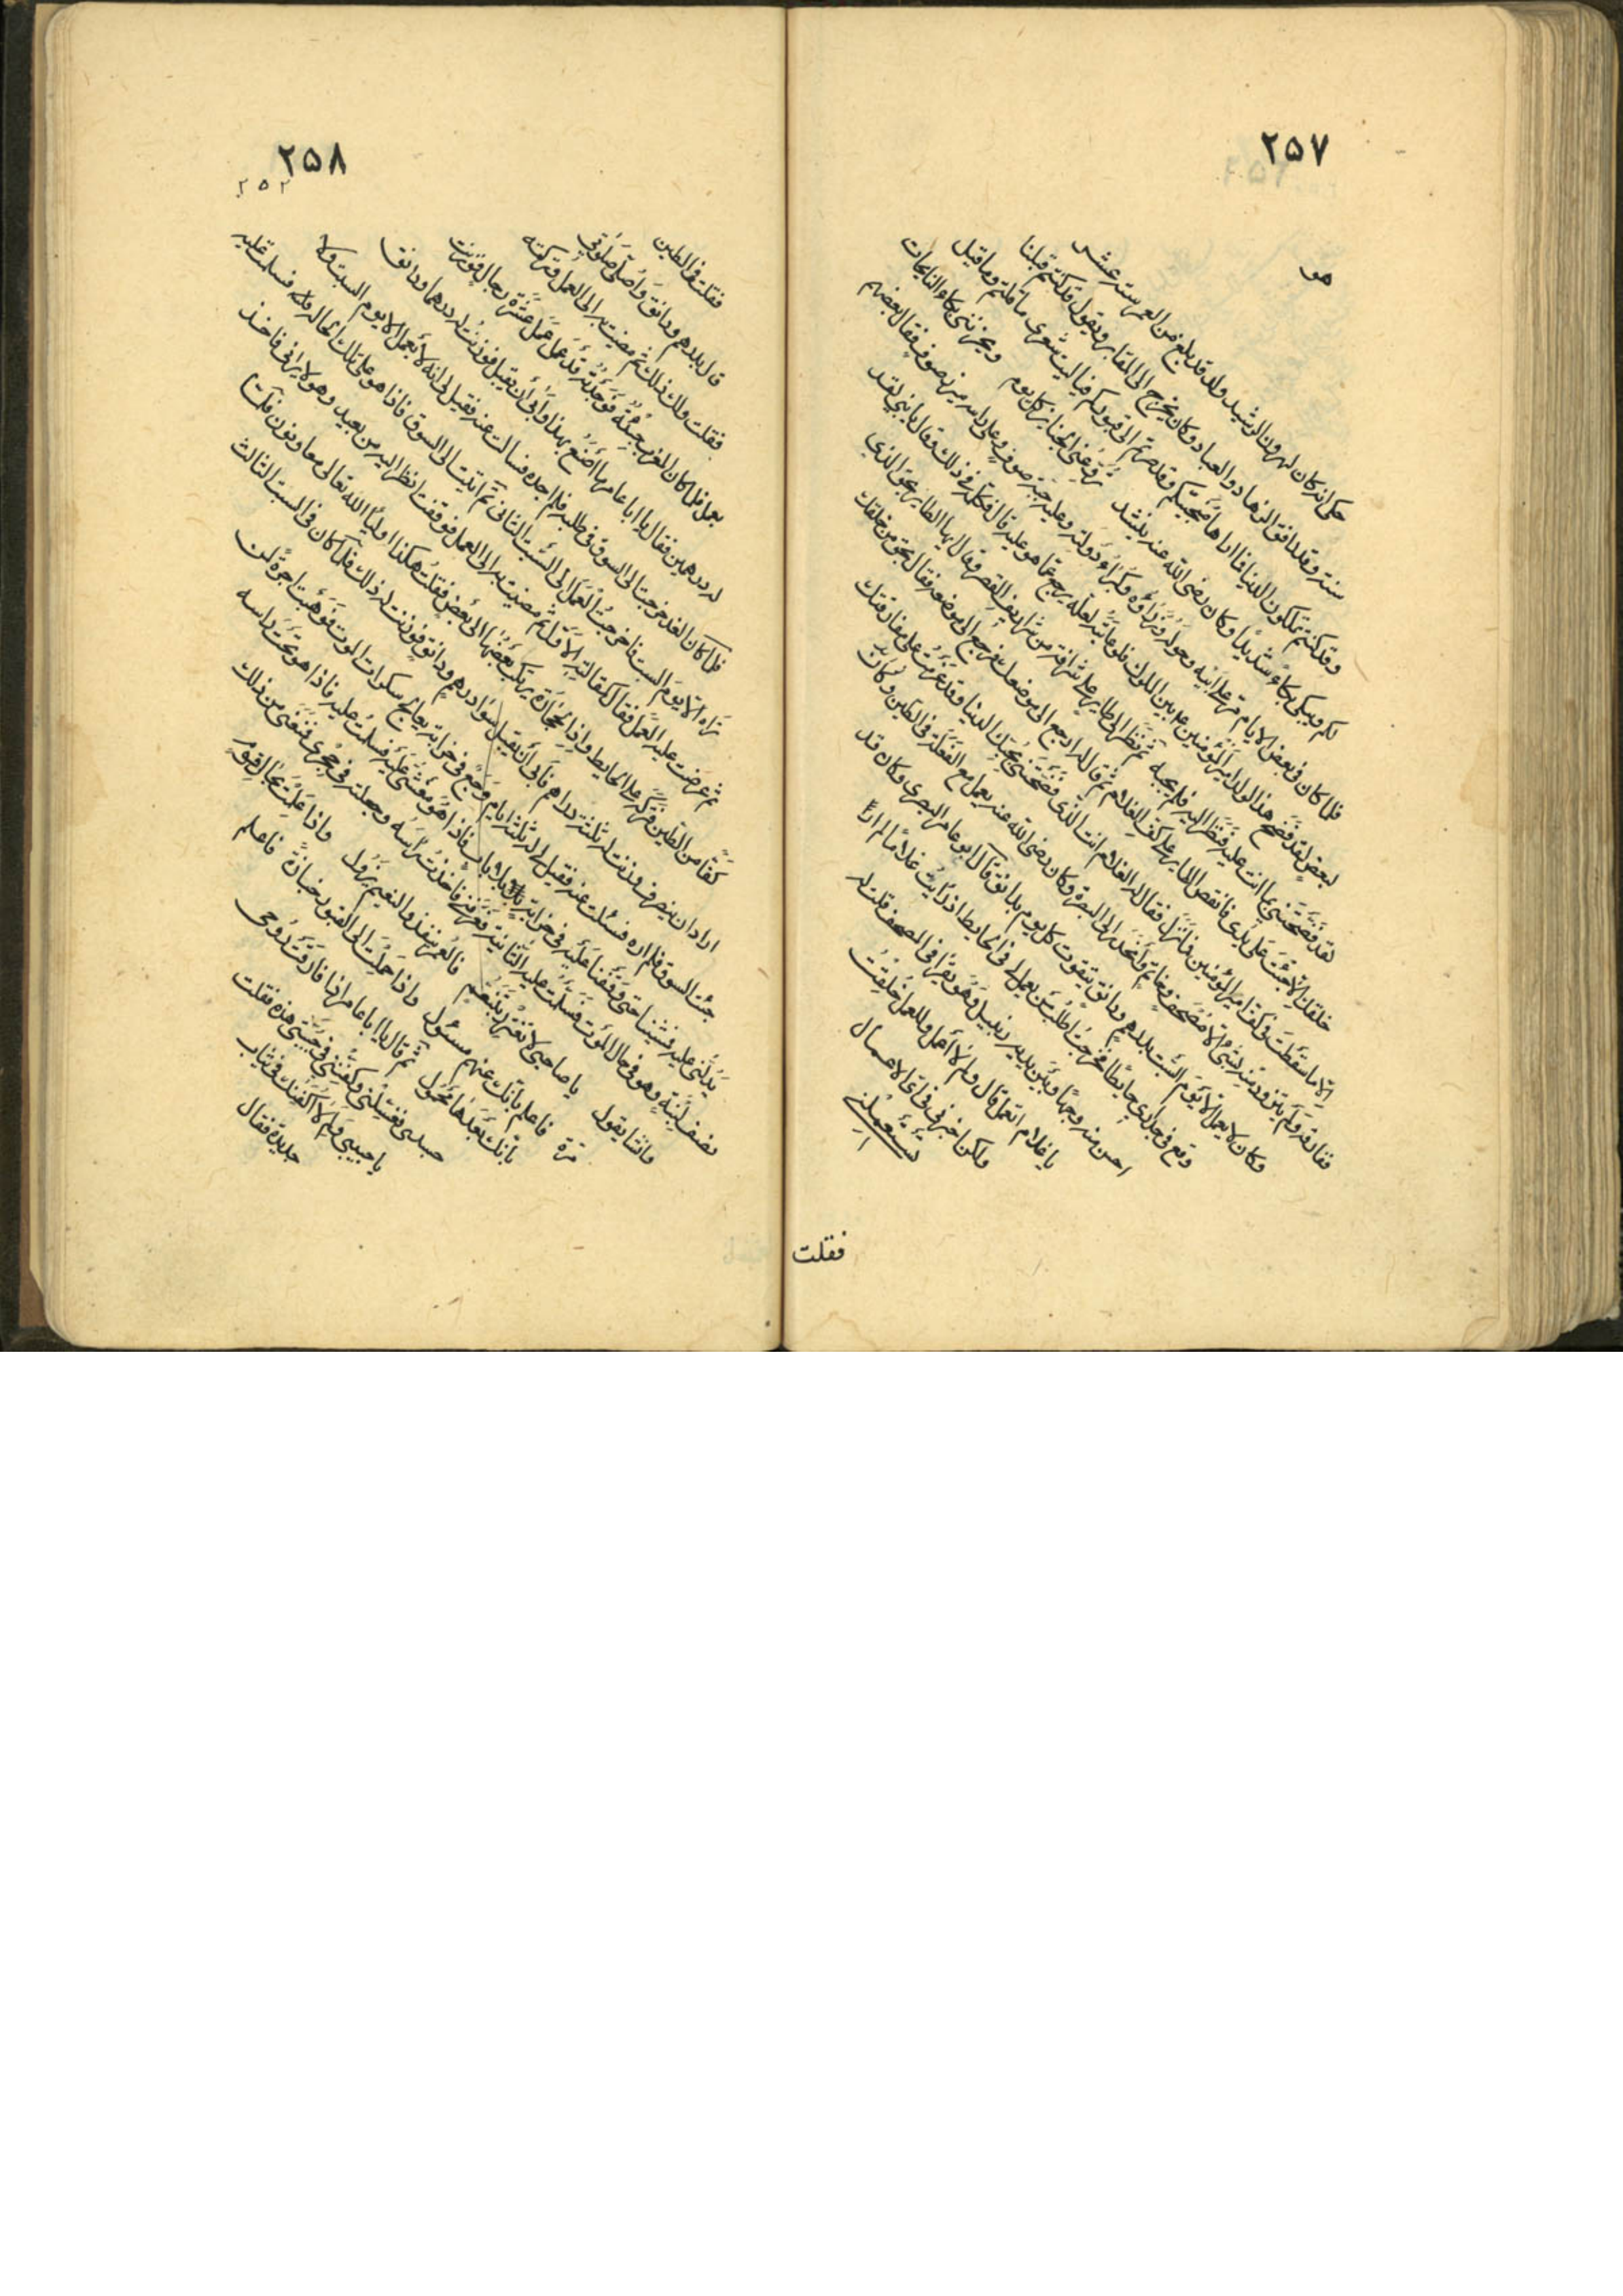 ٢٥٧
هو
حكى انه كان لهرون الرشيد ولد قد بلغ من العمر ستة عشر
سنة وقد رافق الزهاد والعباد وكان يخرج الى المقابر ويقول قد كنتم قبلنا
وقد كنتم تملكون الدنيا فما اراها منجيتكم وقد صرتم الى قبوركم فياليت شعري ما قلتم وما قيل
لكم ويبكي بكاءً شديدًا وكان رضى الله عنه ينشد تروعني الجنايز كل يوم ويحزنني بكاء النايحات
فلما كان في بعض الايام مر على ابيه وحوله وزراؤه وكبراء دولته وعليه جبة صوف وعلى راسه ميزر صوف فقال بعضهم
لبعض لقد فضح هذا الولد امير المؤمنين بين الملوك فلو عاتبه لعله يرجع عما هو عليه قال فكلمه في ذلك وقال يا بني لقد
لقد فضحتني بما انت عليه فنظر اليه فلم يجبه ثم نظر الى طاير على شرافة من شراريف القصر فقال ايها الطاير بحق الذي
خلقك الا جئت على يدى فانقض الطاير على كف الغلام ثم قال له ارجع الى موضعك فرجع الى موضعه فقال بحق من خلقك
الا ما سقطت في كف امير المؤمنين فما نزل فقال له الغلام انت الذى فضحتني بحبك الدنيا وقد عزمت على مفارقتك
ففارقه ولم يتزود منه بشئ الا مصحف وخاتم وانحدر الى البصرة وكان رضى الله عنه يعمل مع الفعلة في الطين وكان
وكان لا يعمل الا يوم السبت بدرهم ودانق يتقوت كل يوم بدانق قال ابو عامر البصرى وكان قد
وقع في جدارى حايطا فخرجت اطلب من يعمل لي في الحايط اذ رايت غلامًا لم ار
احسن منه وجهًا وبين يديه زنبيل وهو يقرا في المصحف قلت له
يا غلام اتعمل قال ولم لا اعمل وللعمل خلقت
ولكن اخبرني في اى الاعمال
تستعملني
فقلت
٢٥٨
٢٥٢
فقلت في الطين
قال بدرهم ودانق واصلى صلوتي
فقلت ولك ذلك ثم مضيت به الى العمل وتركته
يعمل فلما كان المغرب جئته فوجدته قد عمل عمل عشرة رجال فوزنت
له درهمين فقال يا ابا عامر ما اصنع بهذا وابى ان يقبل فوزنت له درهما ودانق
فلما كان الغد خرجت الى السوق في طلبه فلم اجده فسالت عنه فقيل لي انه لا يعمل الا يوم السبت ولا
تراه الا يوم السبت فاخرجت العمل الى السبت الثاني ثم اتيت الى السوق فاذا هو على تلك الحالة فسلمت عليه
ثم عرضت عليه العمل فقال كمقالته الاولة ثم مضيت به الى العمل فوقفت انظر اليه من بعيد وهو لا يراني فاخذ
كفًا من الطين فتركه على الحايط واذا الحجارة يركب بعضها الى بعض فقلت هكذا اولياء الله تعالى معاونون فلما
اراد ان ينصرف وزنت له ثلثة دراهم فابى ان يقبل سوا درهم ودانق فوزنت له ذلك فلما كان في السبت الثالث
جئت السوق فلم اره فسئلت عنه فقيل لي له ثلثة ايام وجع في خرابة يعالج سكرات الموت فوهبت اجرة لمن
يدلني عليه فمشينا حتى وقفنا عليه في خرابة بلا باب فاذا هو مغشى عليه فسلمت عليه فاذا هو تحت راسه
نصف لبنة وهو في حال الموت فسلمت عليه الثانية فعرفني فاخذت راسه وجعلته في حجرى فمنعني من ذلك
وانشا يقول يا صاحبي لا تغترر بتنعم فالعمر ينفذ والنعيم يزول واذا علمت بحال قوم
مرة فاعلم بانك عنهم مسئول واذا حملت الى القبور جنازة فاعلم
بانك بعدها محمول ثم قال يا ابا عامر اذا فارقت روحى
جسدى فغسلني وكفني في جبتي هذه فقلت
يا حبيبي ولم لا اكفنك في ثياب
جديدة فقال